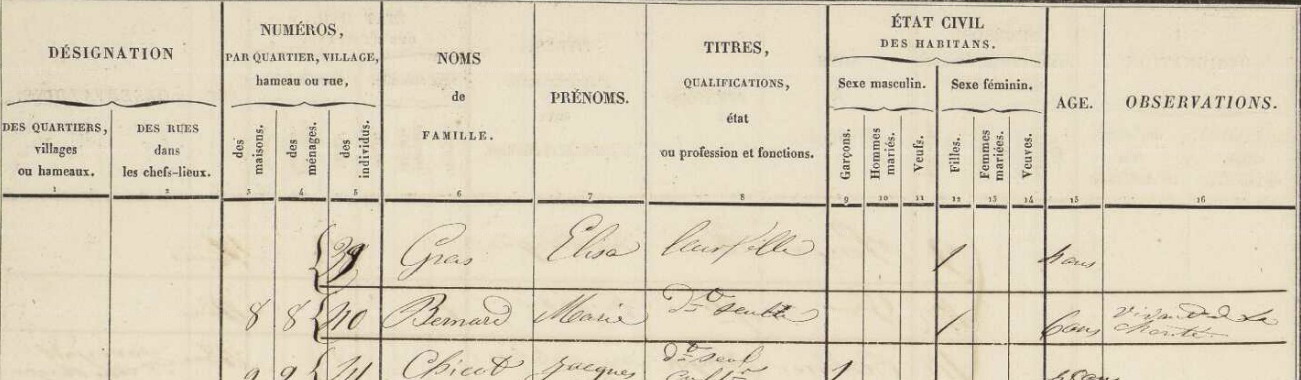 DÉSIGNATION
DES QUARTIERS,
villages
ou hameaux.
1
DES RUES
dans
les chefs-lieux.
2
NUMÉROS,
PAR QUARTIER, VILLAGE,
hameau ou rue,
des
maisons.
3
des
ménages.
4
des
individus.
5
NOMS
de
FAMILLE.
6
PRÉNOMS.
7
TITRES,
QUALIFICATIONS,
état
ou profession et fonctions.
8
ÉTAT CIVIL
DES HABITANS.
Sexe masculin.
Garçons.
9
Hommes
mariés.
10
Veufs.
11
Sexe féminin.
Filles.
12
Femmes
mariées.
13
Veuves.
14
AGE.
15
OBSERVATIONS.
16
39 Gras Elisa leur fille 1 ans
8 8 40 Bernard Marie 1 ans
la
9 9 41 Chicot Jacques seul
1 ans